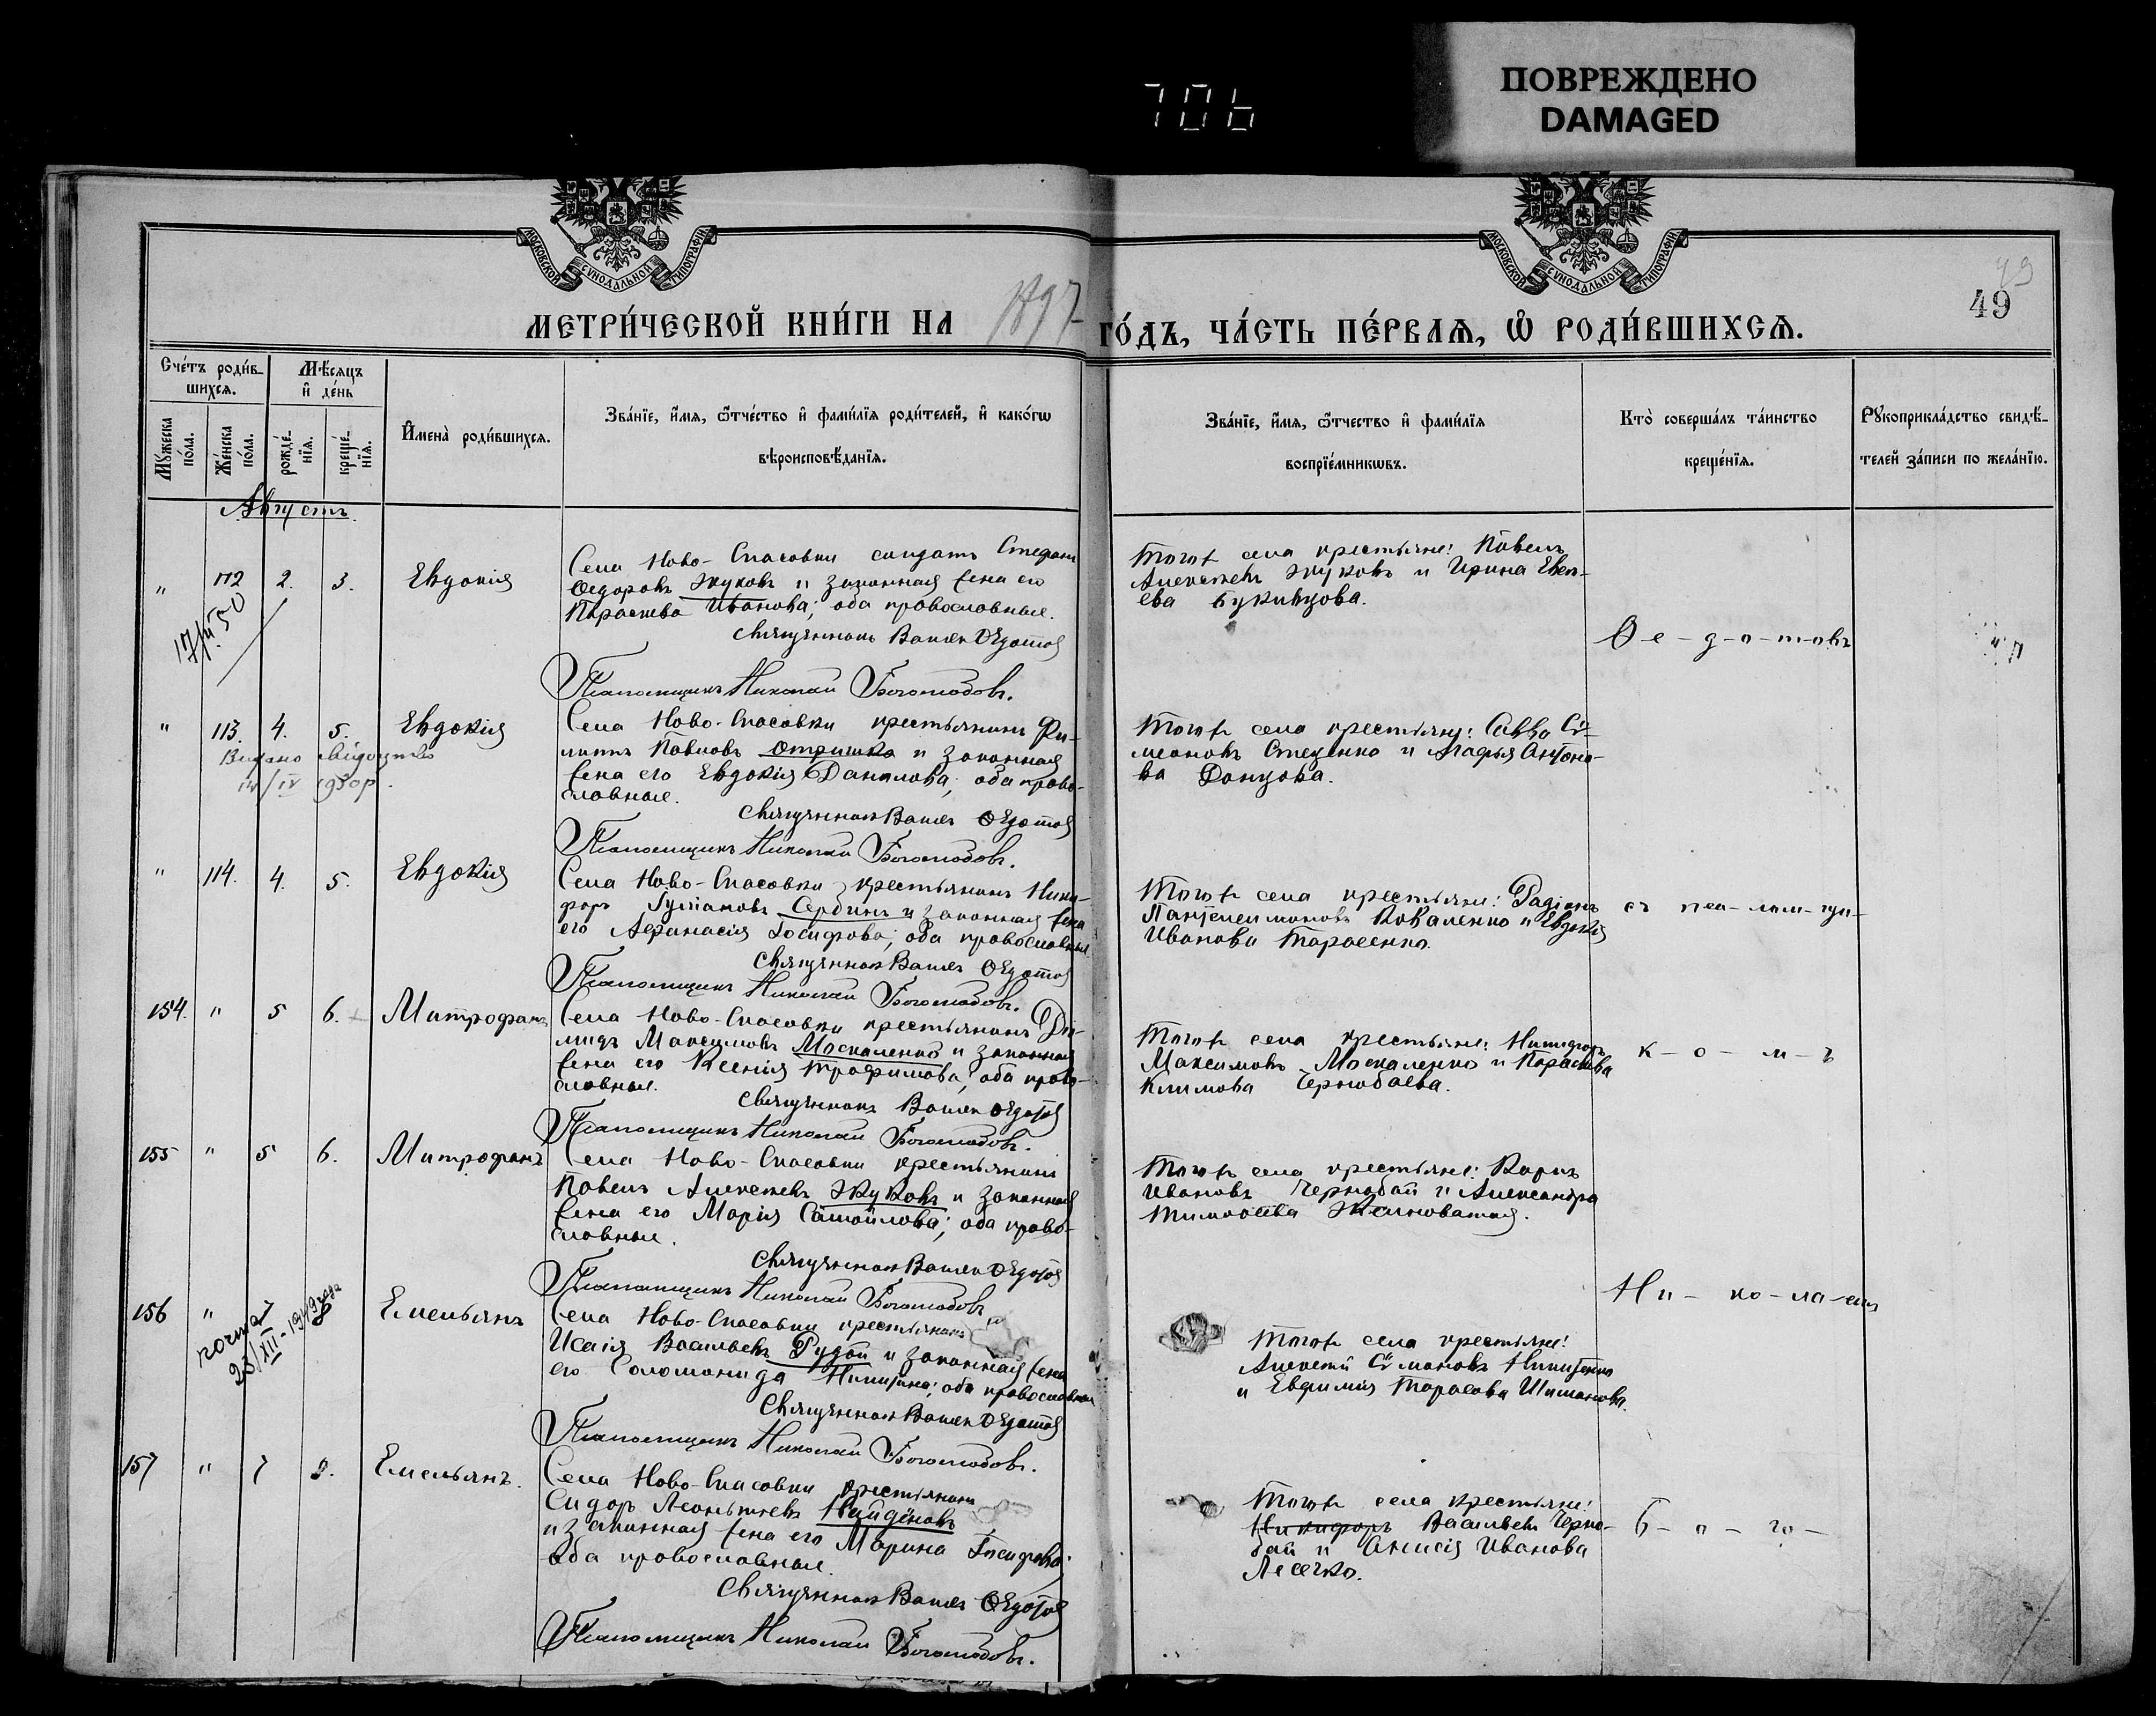 706
ПОВРЕЖДЕНО
DAMAGED
МОСКОВСКОЙ СѴНОДАЛЬНОЙ ТИПОГРАФІИ
МОСКОВСКОЙ СѴНОДАЛЬНОЙ ТИПОГРАФІИ
49
МЕТРИ́ЧЕСКОЙ КНИ́ГИ НА 1897 ГО́ДЪ, ЧА́СТЬ ПЕ́РВАѦ, Ѡ҆ РОДИ́ВШИХСѦ.
Сче́тъ роди́в-
шихсѧ.
Мѣ́сѧцъ
и҆ де́нь
Мꙋ́жеска
по́ла.
Же́нска
по́ла.
рожде́-
нїѧ.
креще́-
нїѧ.
И҆мена̀ роди́вшихсѧ.
Зва́нїе, и҆́мѧ, ѻ҆́тчество и҆ фами́лїѧ роди́телей, и҆ како́гѡ
вѣроисповѣ́данїѧ.
Зва́нїе, и҆́мѧ, ѻ҆́тчество и҆ фами́лїѧ
воспрїе́мникѡвъ.
Кто̀ соверша́лъ та́инство
креще́нїѧ.
Рꙋкоприкла́дство свидѣ́-
телей за́писи по жела́нїю.
Августъ.
" 112 2. 3. Евдокія
Села Ново-Спасовки солдатъ Стефанъ
Ѳедоровъ Жуковъ и законная жена его
Параскева Иванова; оба православные.
Священникъ Василій Ѳедотовъ
Псаломщикъ Николай Боголюбовъ.
Тогоже села крестьяне: Павелъ
Алексѣевъ Жуковъ и Ирина
Ѳ-е-д-о-т-овъ
" 113. 4. 5. Евдокія
Видано свідоцтво
Села Ново-Спасовки крестьянинъ Фи-
липпъ Павловъ Отришко и законная
жена его Евдокія Данилова; оба право-
славные.
Священникъ Василій Ѳедотовъ
Псаломщикъ Николай Боголюбовъ.
Тогоже села крестьяне: Савва Си-
меоновъ Стеценко и Агафья Антоно-
ва Донцова.
" 114. 4. 5. Евдокія
Села Ново-Спасовки крестьянинъ Ники-
форъ Сербинъ и законная жена
его Афанасія Іосифова; оба православные
Священникъ Василій Ѳедотовъ
Псаломщикъ Николай Боголюбовъ.
Тогоже села крестьяне: Радіонъ
Пантелеимоновъ Коваленко и Евдокія
Иванова Тарасенко.
съ пса-лом-щи-
154. " 5 6. Митрофанъ
Села Ново-Спасовки крестьянинъ Діо-
мидъ Максимовъ Москаленко и законная
жена его Ксенія Трофимова; оба право-
славные.
Священникъ Василій Ѳедотовъ
Псаломщикъ Николай Боголюбовъ.
Тогоже села крестьяне: Никифоръ
Максимовъ Москаленко и Параскева
Климова Чернобаева.
к-о-м-ъ
155 " 5 6. Митрофанъ
Села Ново-Спасовки крестьянинъ
Павелъ Алексѣевъ Жуковъ и законная
жена его Марія Самойлова; оба право-
славные.
Священникъ Василій Ѳедотовъ
Псаломщикъ Николай Боголюбовъ
Тогоже села крестьяне: Карпъ
Ивановъ Чернобай и Александра
Тимоѳеева Жалноватая.
Ни-ко-ла-емъ
156 " 7 8 Емельянъ
23/XII-1949 года
Села Ново-Спасовки крестьянинъ
Исаія Васильевъ Рудой и законная жена
его Соломонида Никитина; оба православные
Священникъ Василій Ѳедотовъ
Псаломщикъ Николай Боголюбовъ.
Тогоже села крестьяне:
Алексѣй Симоновъ Никитенко
и Евфимія Тарасова Шиманова.
157 " 7 Емельянъ.
Села Ново-Спасовки крестьянинъ
Сидоръ Леонтьевъ Найдёновъ
и законная жена его Марина Іосифова;
оба православные.
Священникъ Василій Ѳедотовъ
Псаломщикъ Николай Боголюбовъ.
Тогоже села крестьяне:
Никифоръ Васильевъ Черно-
бай и Анисія Иванова
Лесечко.
Б-о-го-